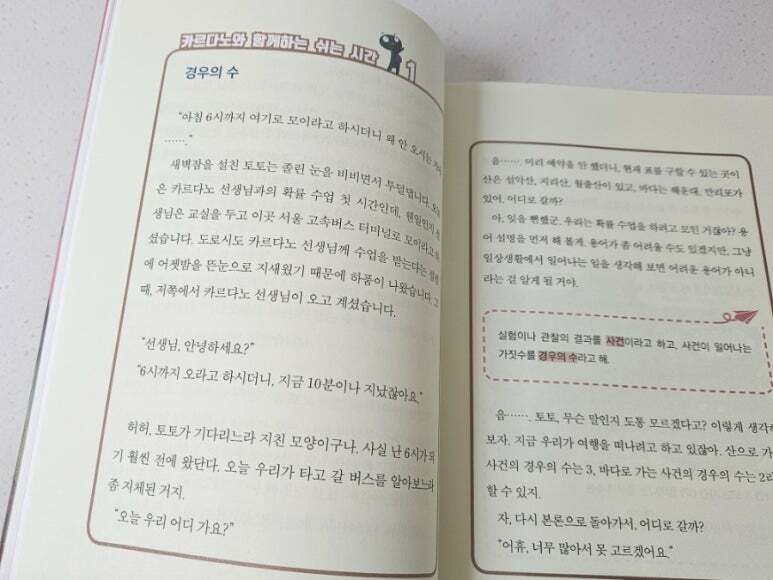 카르다노와 함께하는 쉬는 시간 1
경우의 수
"아침 6시까지 여기로 모이라고 하시더니 왜 안 오시는
……."
새벽잠을 설친 토토는 졸린 눈을 비비면서 투덜댑니다. 오늘
은 카르다노 선생님과의 확률 수업 첫 시간인데, 웬일인지 선
생님은 교실을 두고 이곳 서울 고속버스 터미널로 모이라고 하
셨습니다. 도로시도 카르다노 선생님께 수업을 받는다는
에 어젯밤을 뜬눈으로 지새웠기 때문에 하품이 나왔습니다. 그
때, 저쪽에서 카르다노 선생님이 오고 계셨습니다.
"선생님, 안녕하세요?"
"6시까지 오라고 하시더니, 지금 10분이나 지났잖아요."
허허, 토토가 기다리느라 지친 모양이구나. 사실 난 6시가 되
기 훨씬 전에 왔단다. 오늘 우리가 타고 갈 버스를 알아보느라
좀 지체된 거지.
"오늘 우리 어디 가요?"
음……. 미리 예약을 안 했더니, 현재 표를 구할 수 있는 곳이
산은 설악산, 지리산, 월출산이 있고, 바다는 해운대, 만리포가
있어. 어디로 갈까?
아, 잊을 뻔했군. 우리는 확률 수업을 하려고 모인 거잖아? 용
어 설명을 먼저 해 볼게. 용어가 좀 어려울 수도 있겠지만, 그냥
일상생활에서 일어나는 일을 생각해 보면 어려운 용어가 아니
라는 걸 알게 될 거야.
실험이나 관찰의 결과를 사건이라고 하고, 사건이 일어나는
가짓수를 경우의 수라고 해.
음……. 토토, 무슨 말인지 도통 모르겠다고? 이렇게 생각해
보자. 지금 우리가 여행을 떠나려고 하고 있잖아. 산으로 가
사건의 경우의 수는 3, 바다로 가는 사건의 경우의 수는 2라
할 수 있지.
자, 다시 본론으로 돌아가서, 어디로 갈까?
"어휴, 너무 많아서 못 고르겠어요."